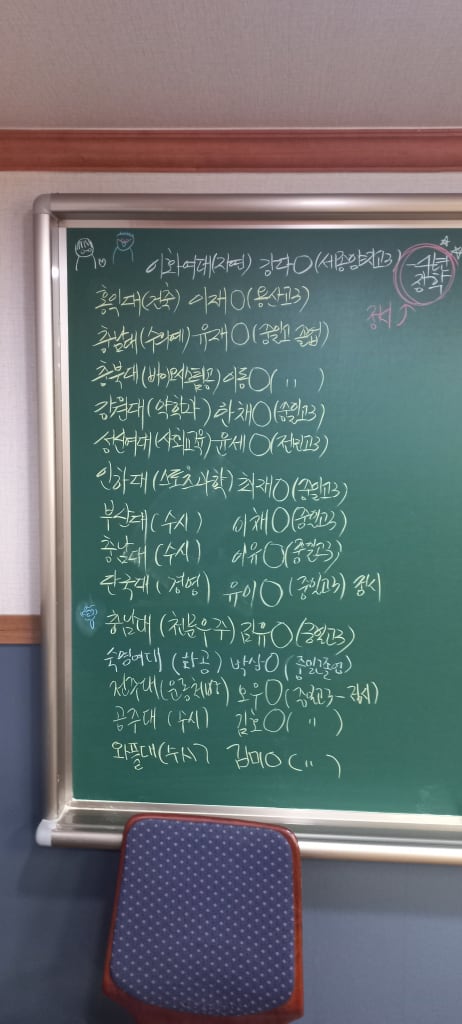 이화여대(자연) 강다○(세종양지고3)
홍익대(건축) 이재○(용산고3)
충남대(수의예) 유재○(중일고 졸업)
충북대(바이오시스템공) 이동○( " )
강원대(약학과) 한채○(중일고3)
성신여대(사회교육) 윤세○(전민고3)
인하대(스포츠과학) 최재○(중일고3)
부산대(수시) 이채○(중일고3)
충남대(수시) 이유○(중일고3)
단국대(경영) 유이○(중일고3) 정시
충남대(천문우주) 김유○(중일고3)
숙명여대(화공) 박상○(중일고졸업)
전주대(운동처방) 오우○(중일고3-정시)
공주대(수시) 김호○( " )
와플대(수시) 김머○( " )
합격
정시